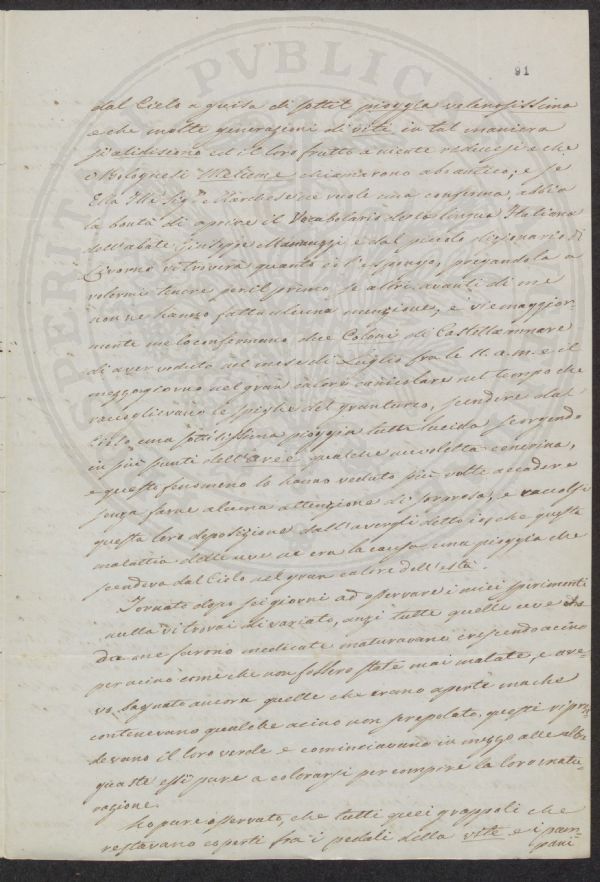 91
dal Cielo a guisa di sottil pioggia velenosissima
e che molte generazioni di viti in tal maniera
si alidiscono ed il loro frutto a niente riducesi e che
i Bolognesi Melume chiamarono ab antico; e se
Ella Ill.e Sig.r Marchese ne vuole una conferma, abbia
la bontà di aprire il Vocabolario della lingua Italiana
dell'abate Giuseppe Manuzzi e dal piccolo dizionario di
Livorno vi troverà quanto io l'espongo, pregandola a
volermi tenere per il primo se altri avanti di me
non ne hanno fatto alcuna menzione, e viemaggior-
mente me lo confermano due Coloni di Castellammare
di aver veduto nel mese di Luglio fra le 11. a.m. e il
mezzogiorno nel gran calore canicolare nel tempo che
raccoglievano le spighe del granturco, scendere dal
Cielo una sottilissima pioggia tutta lucida scorrendo
in più punti dell'aree qualche nuvoletta cenerina,
e questo fenomeno lo hanno veduto più volte accadere
senza farne alcuna attenzione di sorpresa, e raccolsi
questa loro deposizione dall'avergli detto io, che questa
malattia delle uve ne era la causa una pioggia che
scendeva dal Cielo nel gran calore dell'està.
Tornato dopo sei giorni ad osservare i miei sperimenti
nulla vi trovai di variato, anzi tutte quelle uve che
da me furono medicate maturavano crescendo acino
per acino come che non fossero state mai malate, e ave-
vo bagnato ancora quelle che erano aperte ma che
contenevano qualche acino non screpolato, questi ripren-
devano il loro verde e cominciavano in mezzo alle altre
guaste essi pure a colorarsi per compire la loro matu-
razione.
Ho pure osservato, che tutti quei grappoli che
restavano coperti fra i pedali della vite e i pam-
pani